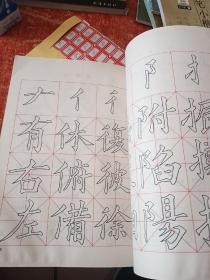 𠂇亻彳
有休復
右俯彼
左備徐
阝扌
附振
陷
陽